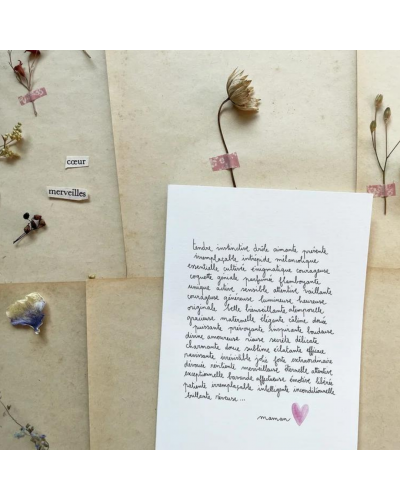 cœur
merveilles
tendre instinctive drôle aimante présente
irremplaçable intrépide mélancolique
essentielle cultivée énigmatique courageuse
coquette géniale parfumée flamboyante
unique active sensible attentive vaillante
courageuse généreuse lumineuse heureuse
originale belle bienveillante atemporelle
gracieuse maternelle élégante câline
puissante prévoyante inspirante
divine amoureuse rieuse secrète délicate
charmante douce sublime éclatante efficace
ravissante irrésistible jolie forte extraordinaire
dévouée merveilleuse éternelle attentive
exceptionnelle bavarde affectueuse émotive libérée
patiente irremplaçable intelligente inconditionnelle
brillante rêveuse ...
maman